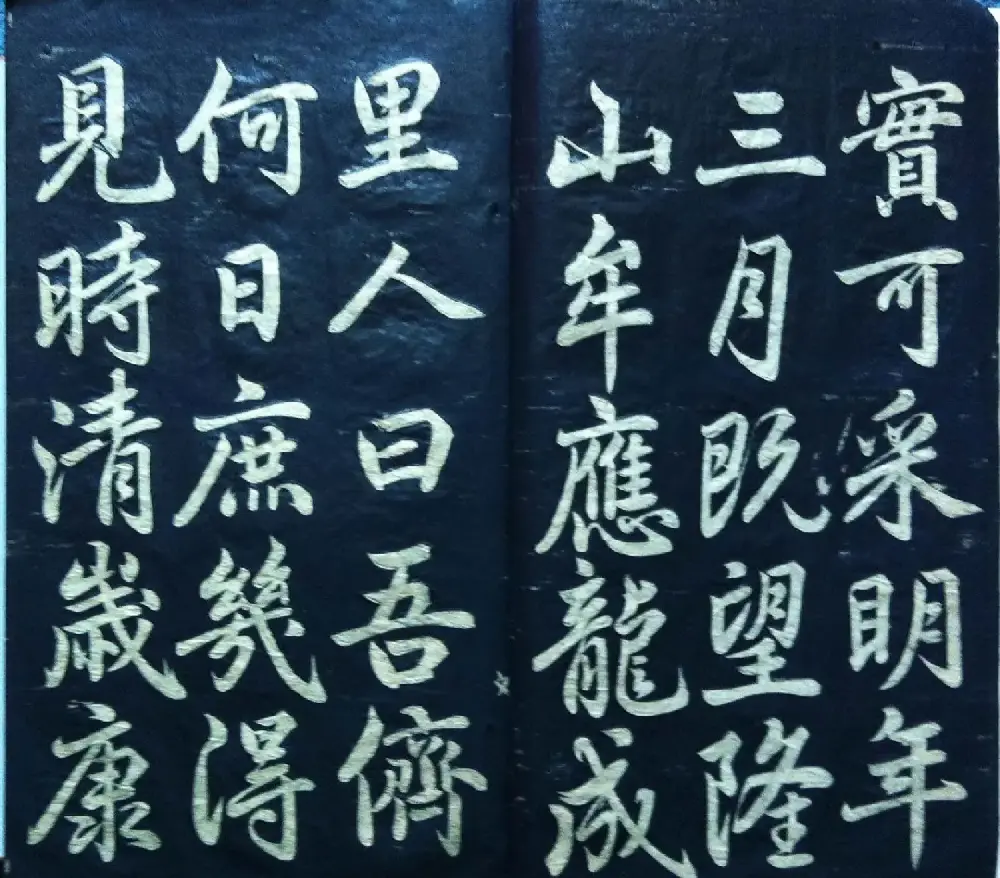 實可采明年
三月既望隆
山牟應龍成
里人曰吾儕
何日庶幾得
見時清歲康